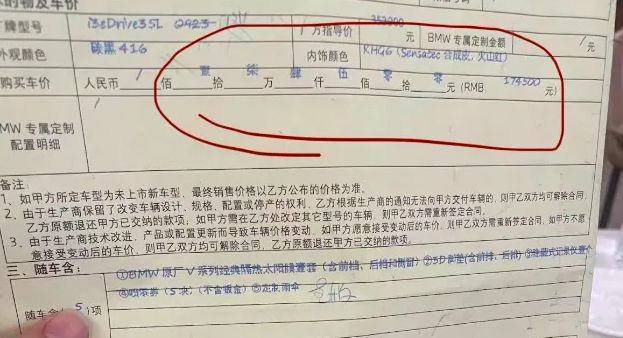 的物及车价
牌型号 i3eDrive35L 2423 厂方指导价 353900 元 BMW 专属定制金额 / 元
外观颜色 碳黑416 内饰颜色 KHG6 (Sensatec 合成皮, 火山红)
购买车价 人民币 / 佰 壹 拾 柒 万 肆 仟 伍 佰 零 拾 零 元 (RMB: 174500 元)
MW 专属定制 /
配置明细
备注:
1、如甲方所定车型为未上市新车型,最终销售价格以乙方公布的价格为准。
2、由于生产商保留了改变车辆设计、规格、配置或停产的权利,乙方根据生产商的通知无法向甲方交付车辆的,则甲乙双方均可解除合同,
乙方原额退还甲方已交纳的款项;如甲方需在乙方处改定其它型号的车辆,则甲乙双方需重新签定合同。
3、由于生产商技术改进、产品或配置更新而导致车辆价格变动,如甲方愿意接受变动后的车价,则甲乙双方需重新签定合同;如甲方不愿
意接受变动后的车价,则甲乙双方均可解除合同,乙方原额退还甲方已交纳的款项。
三、随车含:
①BMW原厂V系列经典隔热太阳膜壹套(含前档、后档和侧窗)②3D脚垫(含前排、后排)③
随车含(5)项 (5次)(不含钣金)⑤定制雨伞